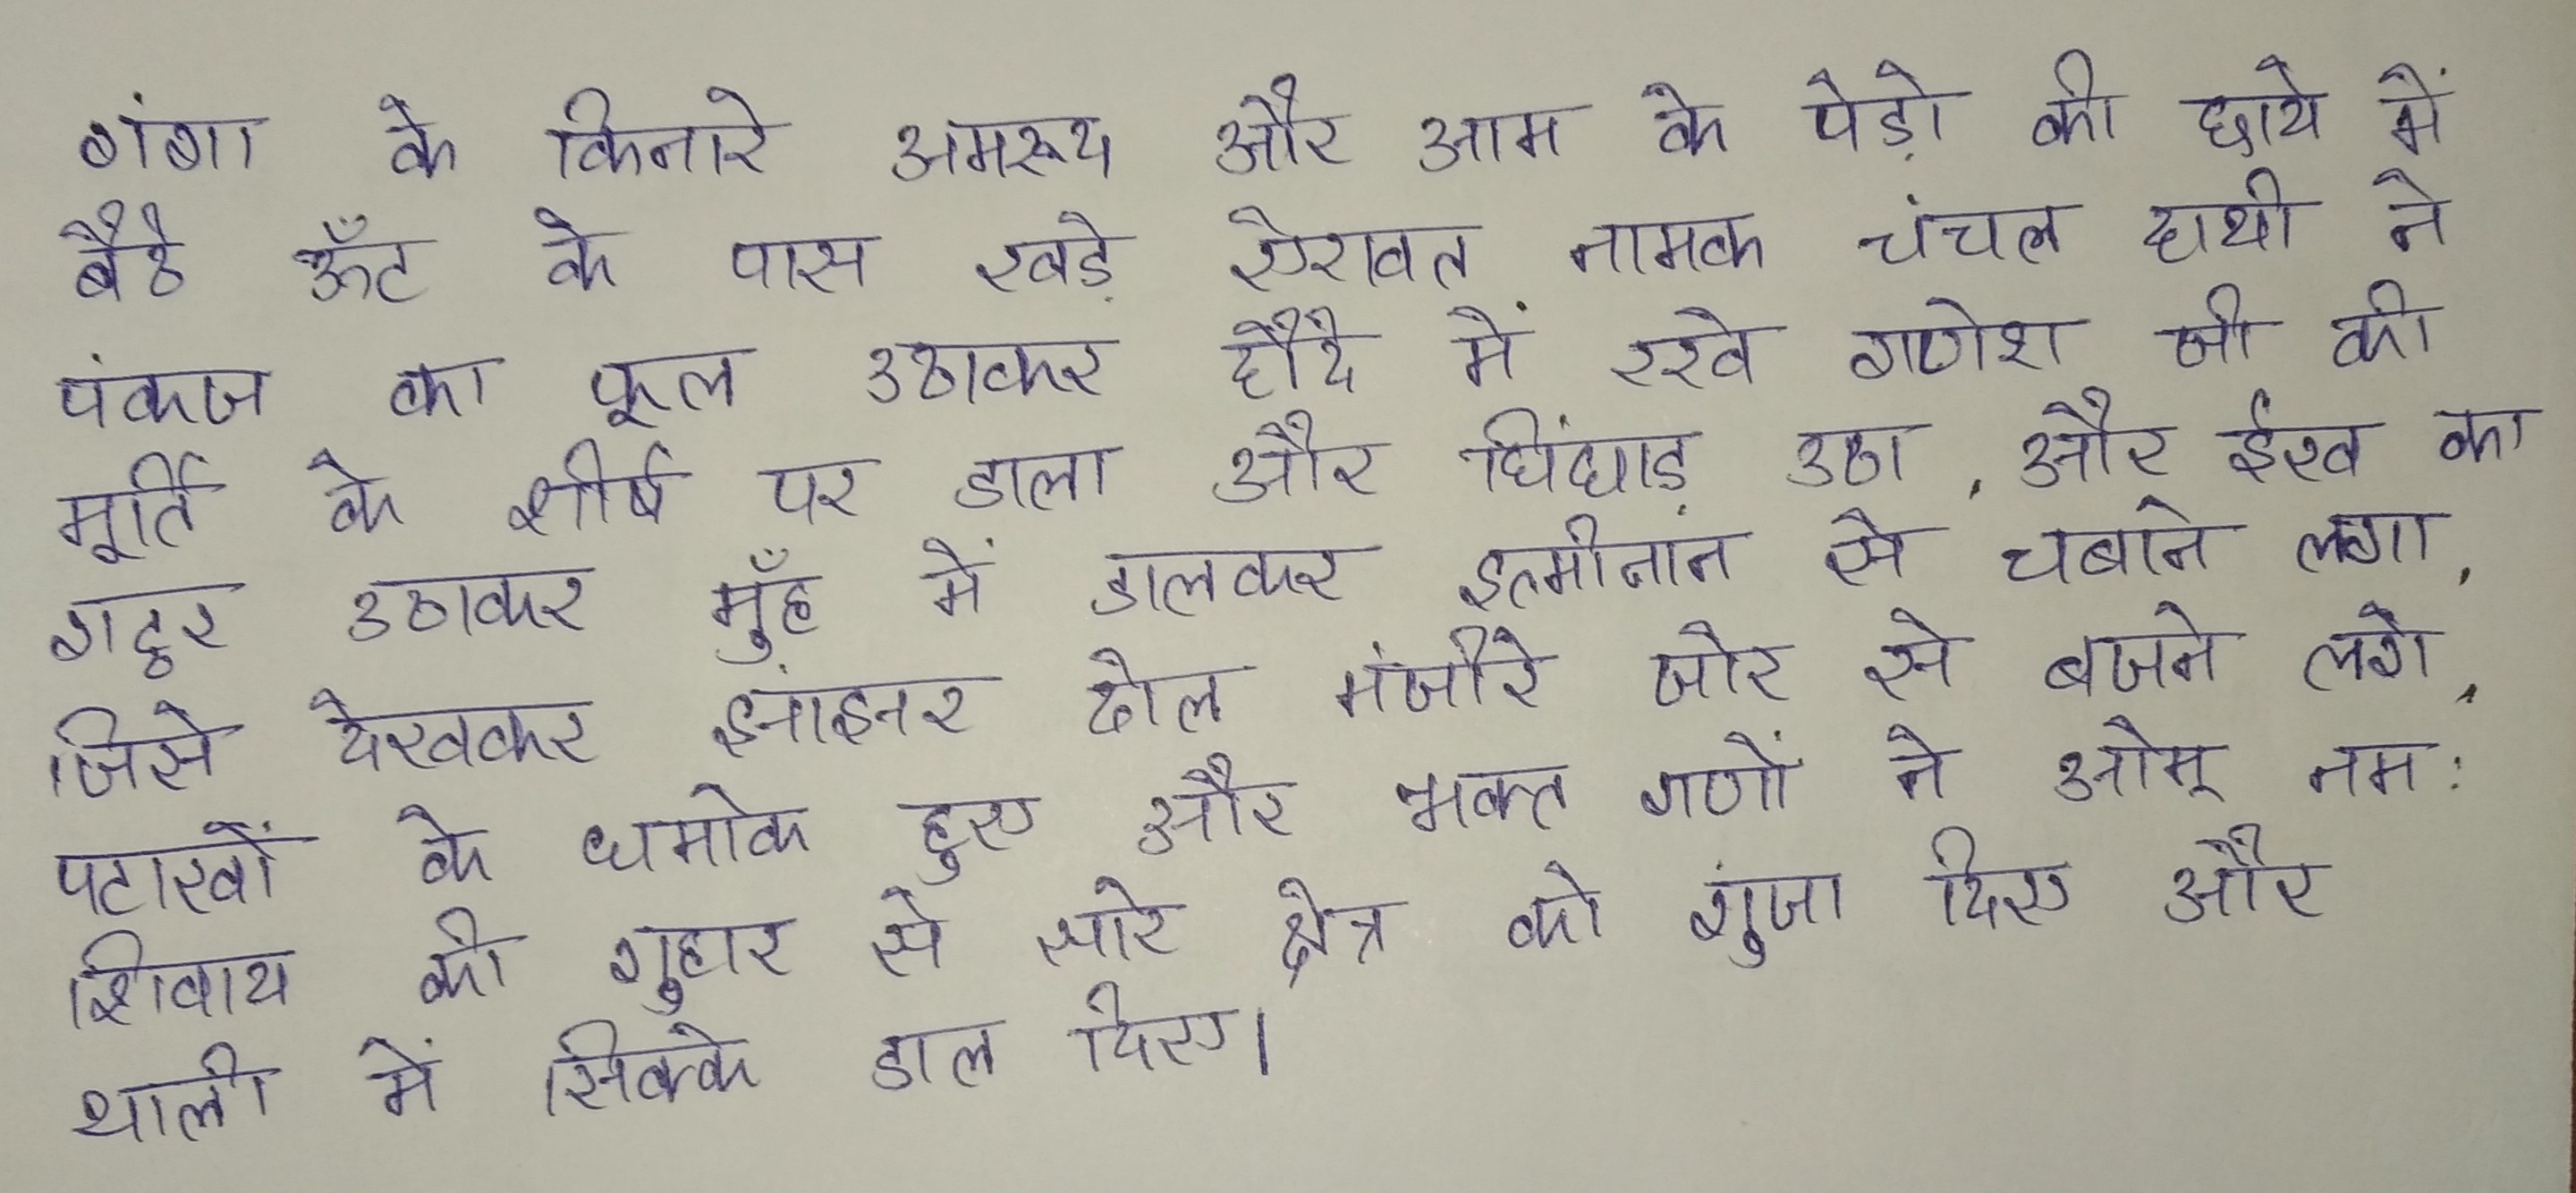 गंगा के किनारे अमरूद और आम के पेड़ो की छाये में
बैठे ऊँट के पास खड़े ऐरावत नामक चंचल हाथी ने
पंकज का फूल उठाकर हौदे में रखे गणेश जी की
मूर्ति के शीर्ष पर डाला और चिंघाड़ उठा, और ईख का
गट्ठर उठाकर मुँह में डालकर इत्मीनान से चबाने लगा,
जिसे देखकर झांझर ढोल मंजीरे जोर से बजने लगे,
पटाखों के धमाके हुए और भक्त गणों ने ओम् नमः
शिवाय की गुहार से सारे क्षेत्र को गुंजा दिए और
थाली में सिक्के डाल दिए।